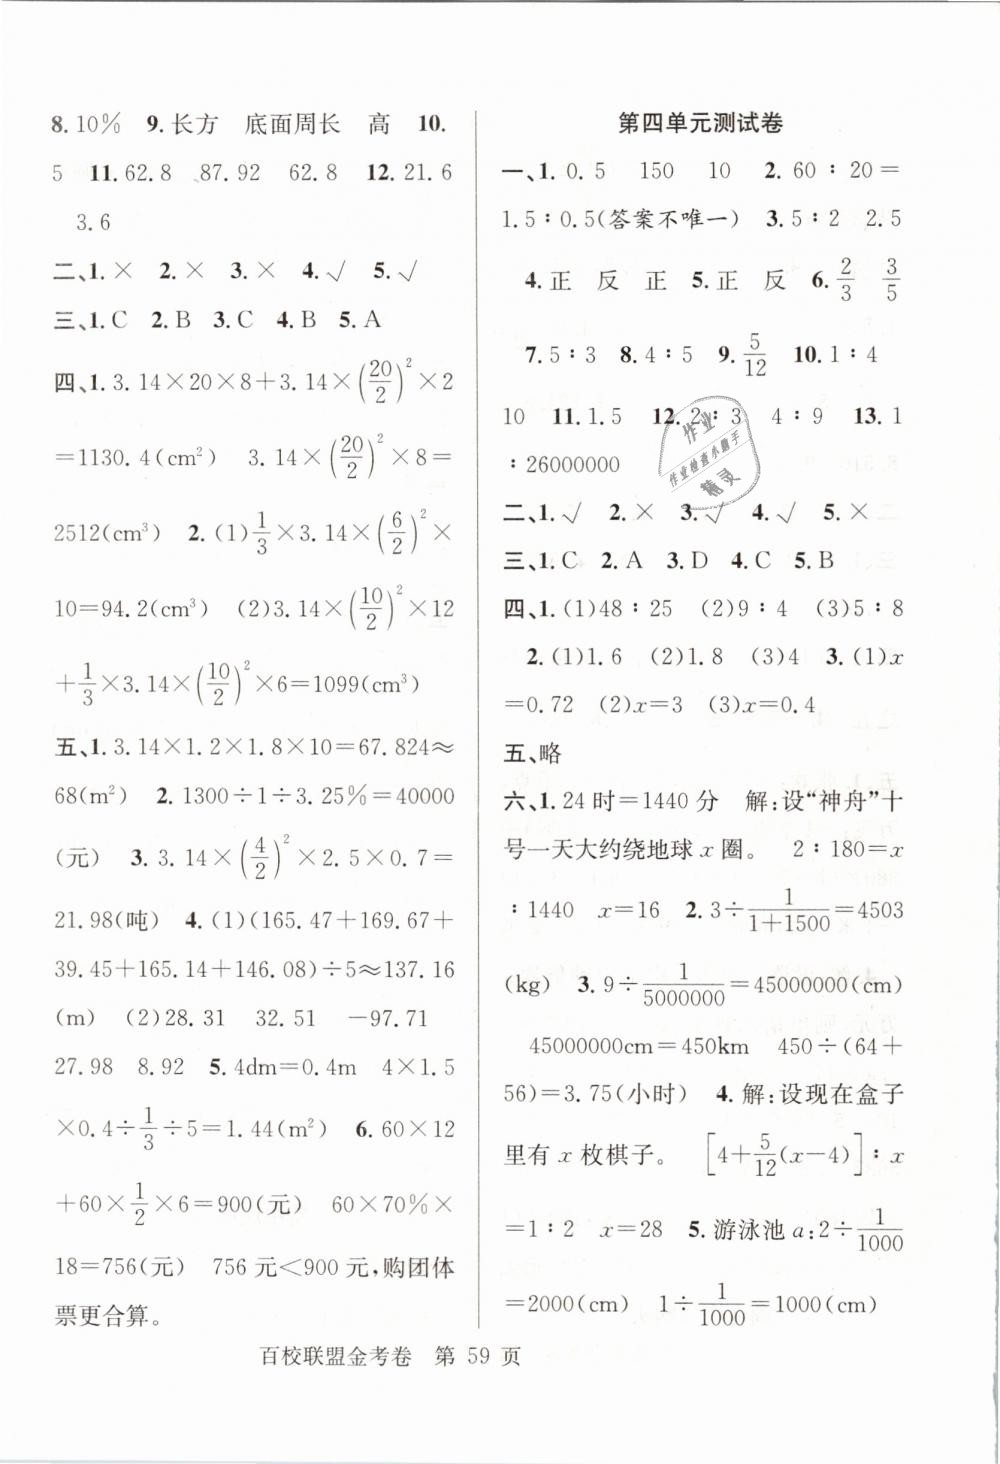 8. 10% 9. 长方 底面周长 高 10.
5 11. 62.8 87.92 62.8 12. 21.6
3.6
二、1. × 2. × 3. × 4. √ 5. √
三、1. C 2. B 3. C 4. B 5. A
四、1. 3.14×20×8+3.14×(20/2)²×2
=1130.4(cm²) 3.14×(20/2)²×8=
2512(cm³) 2. (1)1/3×3.14×(6/2)²×
10=94.2(cm³) (2)3.14×(10/2)²×12
+1/3×3.14×(10/2)²×6=1099(cm³)
五、1. 3.14×1.2×1.8×10=67.824≈
68(m²) 2. 1300÷1÷3.25%=40000
(元) 3. 3.14×(4/2)²×2.5×0.7=
21.98(吨) 4. (1)(165.47+169.67+
39.45+165.14+146.08)÷5≈137.16
(m) (2)28.31 32.51 -97.71
27.98 8.92 5. 4dm=0.4m 4×1.5
×0.4÷1/3÷5=1.44(m²) 6. 60×12
+60×1/2×6=900(元) 60×70%×
18=756(元) 756元<900元,购团体
票更合算。
第四单元测试卷
一、1. 0.5 150 10 2. 60∶20=
1.5∶0.5(答案不唯一) 3. 5∶2 2.5
4. 正 反 正 5. 正 反 6. 2/3 3/5
7. 5∶3 8. 4∶5 9. 5/12 10. 1∶4
10 11. 1.5 12. 2∶3 4∶9 13. 1
∶26000000
作业
作业检查小助手
精灵
二、1. √ 2. × 3. √ 4. √ 5. ×
三、1. C 2. A 3. D 4. C 5. B
四、1. (1)48∶25 (2)9∶4 (3)5∶8
2. (1)1.6 (2)1.8 (3)4 3. (1)x
=0.72 (2)x=3 (3)x=0.4
五、略
六、1. 24时=1440分 解:设“神舟”十
号一天大约绕地球x圈。 2∶180=x
∶1440 x=16 2. 3÷1/(1+1500)=4503
(kg) 3. 9÷1/5000000=45000000(cm)
45000000cm=450km 450÷(64+
56)=3.75(小时) 4. 解:设现在盒子
里有x枚棋子。 [4+5/12(x-4)]∶x
=1∶2 x=28 5. 游泳池a:2÷1/1000
=2000(cm) 1÷1/1000=1000(cm)
百校联盟金考卷 第 59 页